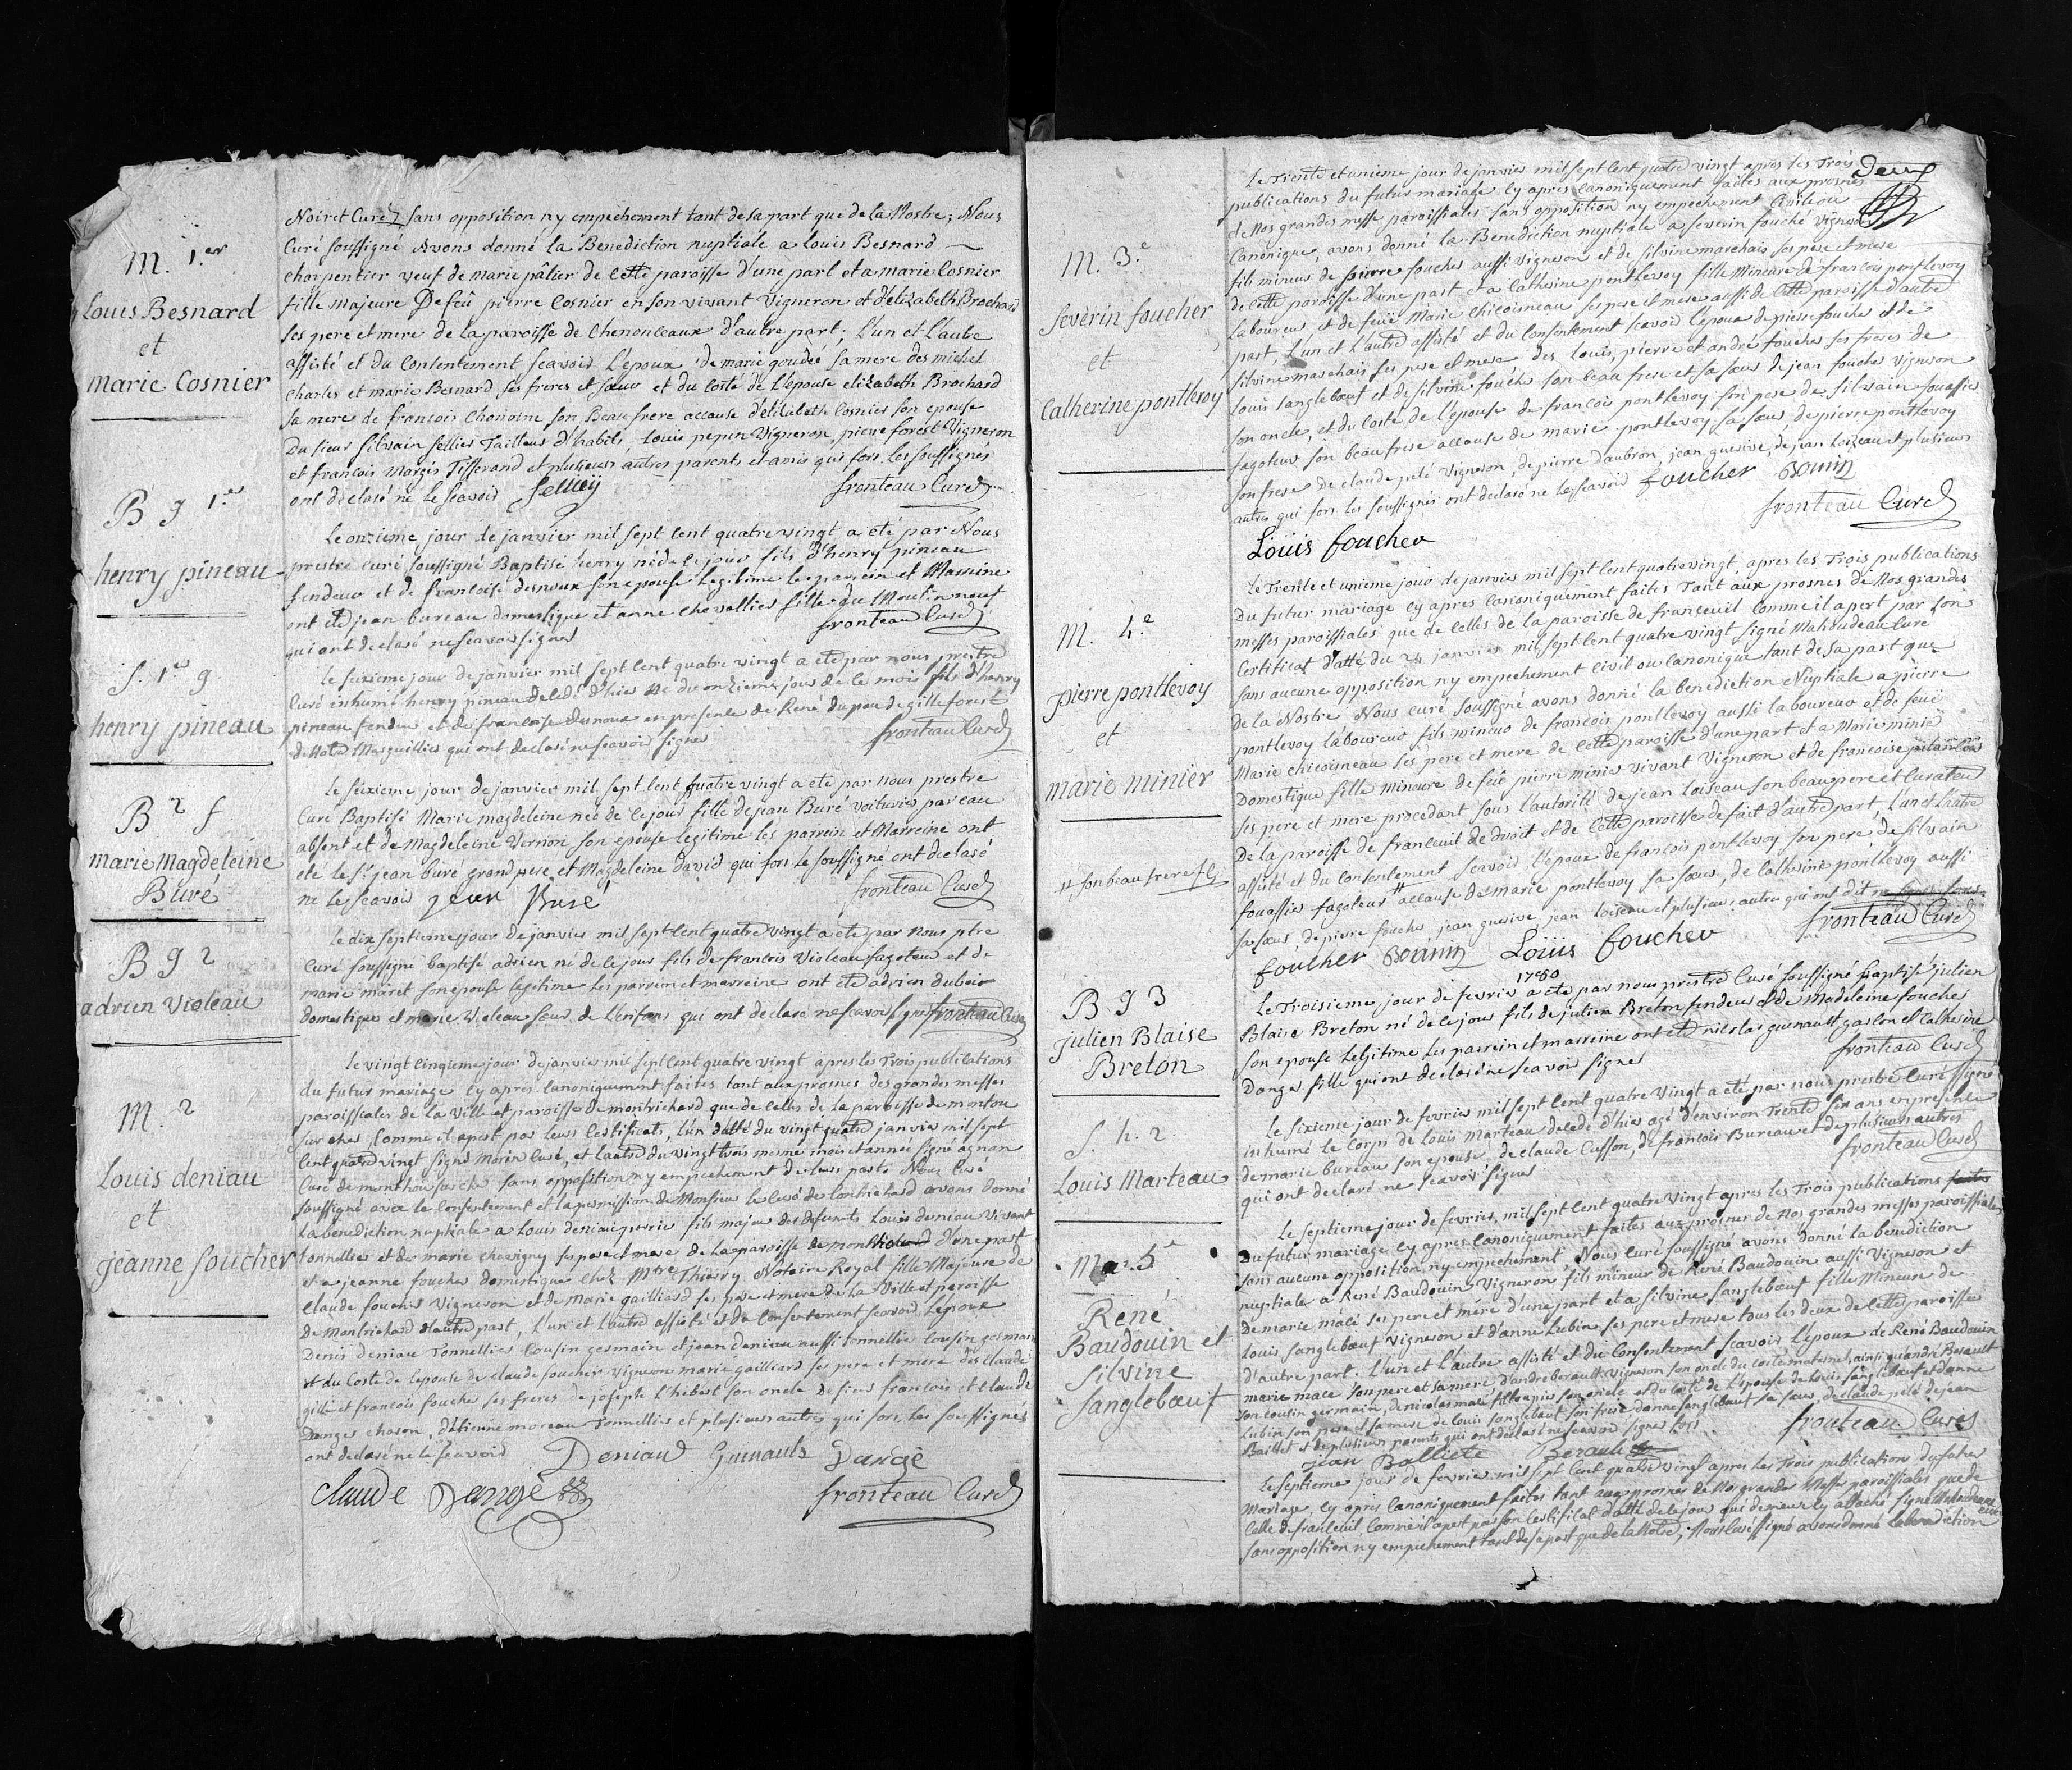 M. 1.er
Louis Besnard
et
marie Cosnier
Noiret Curé sans opposition ny empechement tant de sa part que de la Nostre; Nous
Curé soussigné Avons donné la Benediction nuptiale a Louis Besnard
charpentier veuf de marie pâlier de cette paroisse d'une part et a marie Cosnier
fille majeure De feû pierre Cosnier en son vivant Vigneron et d'elizabeth Brochard
ses pere et mere de la paroisse de Chenonceaux d'autre part; L'un et L'autre
assisté et du Consentement scavoir L'epoux de marie goudeé sa mere des michel
Charles et marie Besnard ses freres et sœur et du Costé de L'epouse elizabeth Brochard
sa mere de francois Chanoine son Beau frere acause d'elizabeth Cosnier son epouse
Du sieur silvain sellier Tailleur d'habits, Louis pepin Vigneron, pierre forest Vigneron
et francois margis Tisserand et plusieurs autres parents et amis qui fors les soussignés
ont déclaré ne le scavoir fronteau Curé
B g 1.er
henry pineau
Le onzieme jour de janvier mil sept cent quatre vingt a eté par Nous
prestre curé soussigné Baptisé henry né de ce jour fils d'henry pineau
fendeur et de francoise desnoux son epouse Legitime Les parrein et Marreine
ont eté jean bureau domestique et anne chevallier fille du Moulin neuf
qui ont declaré ne scavoir signer fronteau Curé
S. 1.er g
henry pineau
Le seizieme jour de janvier mil sept cent quatre vingt a eté par nous prestre
Curé inhumé henry pineau decedé d'hier né du onzieme jour de ce mois fils d'henry
pineau fendeur et de francoise desnoux en presence de René dupou de gille forest
de Notre Marguillier qui ont declaré ne scavoir signer fronteau Curé
B 2 f
marie Magdeleine
Buré
Le seizieme jour de janvier mil sept cent quatre vingt a eté par nous prestre
Curé Baptisé Marie magdeleine née de ce jour fille de jean Buré voiturier par eau
absent et de Magdeleine Vernon son epouse legitime les parrein et Marreine ont
eté le Sr. jean buré grand pere et Magdeleine David qui fors le soussigné ont declaré
ne le scavoir jean Buré fronteau Curé
B g 2
adrien violeau
Le dix septieme jour de janvier mil sept cent quatre vingt a eté par nous ptre
Curé soussigné baptisé adrien né de ce jour fils de francois Violeau fagoteur et de
marie maret son epouse legitime les parrein et marreine ont eté adrien dubois
domestique et marie Violeau sœur de L'enfant qui ont declaré ne scavoir signer fronteau Curé
M. 2
Louis deniau
et
jeanne foucher
Le vingt cinqieme jour de janvier mil sept cent quatre vingt apres les Trois publications
du futur mariage cy apres canoniquement faites tant aux prosnes des grandes messes
paroissiales de la Ville et paroisse de montrichard que de celles de la paroisse de monton
sur cher, Comme il apert par leurs Certificats, L'un datté du vingt quatre janvier mil sept
cent quatre vingt signé Morin Curé, et L'autre du vingt trois meme mois et année signé agnan
Curé de monthou sur cher sans opposition ny empechement de leurs parts Nous Curé
soussigné avec le Consentement et la permission de Monsieur le Curé de Montrichard avons donné
La benediction nuptiale a Louis deniau fils majeur des defunts Louis deniau Vivant
tonnellier et de marie chavigny ses pere et mere de la paroisse de d'une part
et a jeanne foucher domestique chez Mtre Thierry Notaire Royal fille Majeure de
Claude foucher Vigneron et de Marie gailliard ses pere et mere de la Ville et paroisse
de Montrichard d'autre part, L'un et L'autre assisté et du Consentement scavoir, L'epoux
Denis deniau Tonnellier Cousin germain et jean deniau aussi tonnellier Cousin germain
et du Costé de L'epouse de claude foucher Vigneron marie gailliard ses pere et mere des claude
gille et francois foucher ses freres de joseph L'hibert son oncle De sieur francois et Claude
Danger charon, d'etienne moreau Tonnellier et plusieurs autres qui fors les soussignés
ont declaré ne le scavoir Deniaud Guinault Dangé
Claude Dangé fronteau Curé
Deux
M. 3.e
Sevérin foucher
et
Catherine pontlevoy
Le Trente et unieme jour de janvier mil sept cent quatre vingt apres les Trois
publications du futur mariage cy apres Canoniquement faites aux prosnes
de Nos grandes messe paroissiales sans opposition ny empechement Civil ou
Canonique, avons donné la Benediction nuptiale a severin fouché Vigneron
fils mineur de pierre foucher aussi vigneron et de silvine marchais ses pere et mere
de cette paroisse d'une part et a Catherine pontlevoy fille Mineure de francois pontlevoy
Laboureur et de feüe Marie chicoisneau ses pere et mere aussi de Cette paroisse d'autre
part, L'un et L'autre assisté et du Consentement scavoir L'epoux de pierre foucher et de
silvine marchais ses pere et mere des Louis, pierre et andré foucher ses freres de
Louis sanglebœuf et de silvine foucher son beau frere et sa sœur de jean foucher Vigneron
son oncle, et du Costé de L'epouse de francois pontlevoy son pere de silvain fouassier
fagoteur son beau frere acause de marie pontlevoy sa sœur de pierre pontlevoy
son frere de Claude pelé Vigneron, de pierre daubron, jean guerive, de jean Loizeau et plusieurs
autres qui fors les soussignés ont declaré ne le scavoir foucher Bonnin
Loüis foucher fronteau Curé
M. 4.e
pierre pontlevoy
et
marie minier
Le Trente et unieme jour de janvier mil sept cent quatre vingt, apres les Trois publications
Du futur mariage cy apres Canoniquement faites Tant aux prosnes de Nos grandes
messes paroissiales que de Celles de la paroisse de franceuil Comme il apert par son
Certificat d'atté du 24 janvier mil sept cent quatre vingt signé Mahoudeau Curé
sans aucune opposition ny empechement Civil ou Canonique tant de sa part que
de la Nostre Nous curé soussigné avons donné la benediction Nuptiale a pierre
pontlevoy laboureur fils mineur de francois pontlevoy aussi laboureur et de feue
Marie chicoisneau ses pere et mere de Cette paroisse d'une part et a Marie minié
Domestique fille mineure de feû pierre minier vivant Vigneron et de francoise
ses pere et mere procedant sous l'autorité de jean Loiseau son beau pere et Curateur
De la paroisse de franceuil de droit et de Cette paroisse de fait d'autre part, L'un et L'autre
assisté et du Consentement scavoir L'epoux de francois pontlevoy son pere, de silvain
fouassier fagoteur # acause de marie pontlevoy sa sœur, de Catherine pontlevoy aussi
# son beau frere
sa sœur, de pierre foucher, jean guerive jean Loiseau et plusieurs autres qui ont dit
foucher Bonnin Loüis foucher fronteau Curé
B g 3
julien Blaise
Breton
1780
Le Troisieme jour de fevrier a eté par nous prestre Curé soussigné baptisé julien
Blaise Breton né de ce jour fils de julien Breton fendeur et de Madeleine foucher
son epouse Legitime Les parrein et marreine ont eté nicolas guenault garcon et Catherine
Danger fille qui ont declaré ne scavoir signer fronteau Curé
S. h. 2
Louis Marteau
Le sixieme jour de fevrier mil sept cent quatre vingt a eté par nous prestre Curé signé
inhumé le Corps de Louis Marteau decedé d'hier agé d'environ Trente six ans en presence
de marie bureau son epouse, de Claude Cusson, de francois Bureau et de plusieurs autres
qui ont declaré ne scavoir signer fronteau Curé
M. 5.e
René
Baudouin et
Silvine
Sanglebœuf
Le septieme jour de fevrier, mil sept cent quatre vingt apres les Trois publications
Du futur mariage cy apres Canoniquement faites aux prosnes de Nos grandes messes paroissiales
sans aucune opposition ny empechement, Nous curé soussigné avons donné la benediction
nuptiale a René Baudouin Vigneron fils mineur de René Baudouin aussi Vigneron et
De marie mâcé ses pere et mére d'une part et a silvine sanglebœuf fille Mineure de
Louis sanglebœuf Vigneron et d'anne Lubin ses pere et mere tous les deux de Cette paroisse
d'autre part. L'un et L'autre assisté et du Consentement scavoir L'epoux de René Baudouin
marie mace son pere et sa mere d'andré berault Vigneron son oncle du costé maternel, ainsi qu'andré Berault
son cousin germain, de nicolas macé son oncle et du Costé de L'epouse de Louis sanglebœuf et d'anne
Lubin son pere et sa mere de Louis sanglebœuf son frere d'anne sanglebœuf sa sœur, de claude pelé de jean
Baillet et de plusieurs parents qui ont declaré ne scavoir signer fors
jean Balliete Berault fronteau Curé
Le septieme jour de fevrier mil sept cent quatre vingt apres les Trois publications du futur
Mariage, cy apres Canoniquement faites tant aux prosnes de Nos grandes Messes paroissiales que de
Celle de franceuil Comme il apert par son Certificat datté de ce jour qui demeure cy attaché signé Mahoudeau curé
sans opposition ny empechement tant de sa part que de la Nostre, Nous Curé signé avons donné la benediction